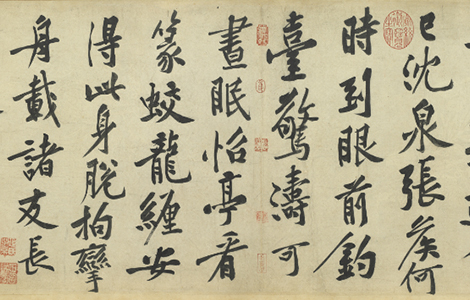 已沈泉張侯何
時到眼前釣
臺驚濤可
晝眠怡亭看
篆蛟龍纏安
得此身脫拘攣
舟載諸友長